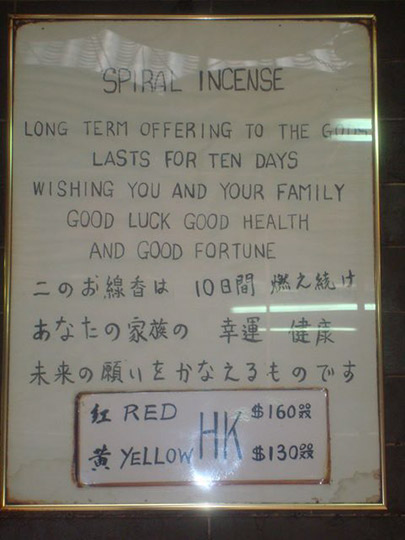 SPIRAL INCENSE
LONG TERM OFFERING TO THE GODS
LASTS FOR TEN DAYS
WISHING YOU AND YOUR FAMILY
GOOD LUCK GOOD HEALTH
AND GOOD FORTUNE
このお線香は 10日間 燃え続け
あなたの家族の 幸運 健康
未来の願いをかなえるものです
紅 RED HK $160
黄 YELLOW $130